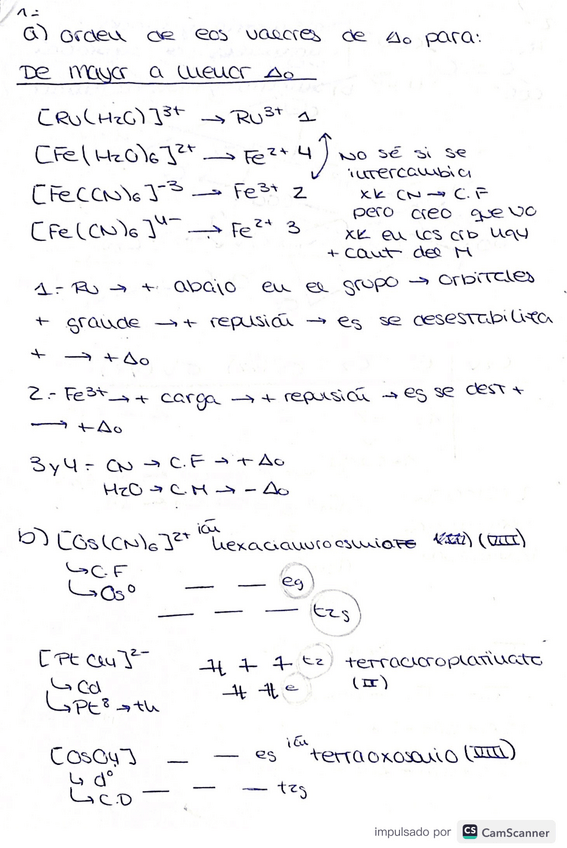 1=
a) orden de los valores de Δo para:
De mayor a menor Δo
[Ru(H2O)]3+ → Ru3+ 1
[Fe(H2O)6]2+ → Fe2+ 4
[Fe(CN)6]-3 → Fe3+ 2
[Fe(CN)6]4- → Fe2+ 3
No sé si se
intercambia
xk CN → C.F
pero creo que no
xk en los orb hay
+ cant del M
1= Ru → + abajo en el grupo → orbitales
+ grande → + repulsión → eg se desestabiliza
+ → + Δo
2.- Fe3+ → + carga → + repulsión → eg se dest +
→ + Δo
3 y 4 = CN → C.F → + Δo
H2O → C.M → - Δo
b) [Os(CN)6]2+ ión hexacianuroosmiato (VIII)
↳ C.F
↳ Os0
eg
t2g
[PtCl4]2- t2 tetracloroplatinato
↳ Cd e (II)
↳ Pt8 → th
[OsO4] eg ión tetraoxosmio (VIII)
↳ d0
↳ C.D t2g
impulsado por CS CamScanner